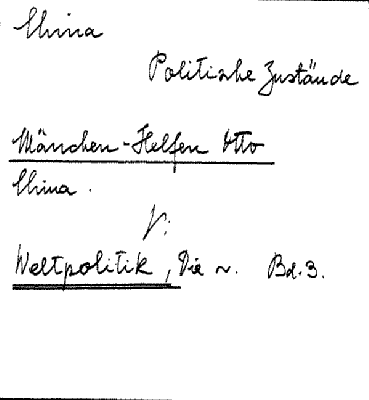 China
Politische Zustände
Mänchen-Helfen Otto
China.
V:
Weltpolitik, Die ~. Bd. 3.